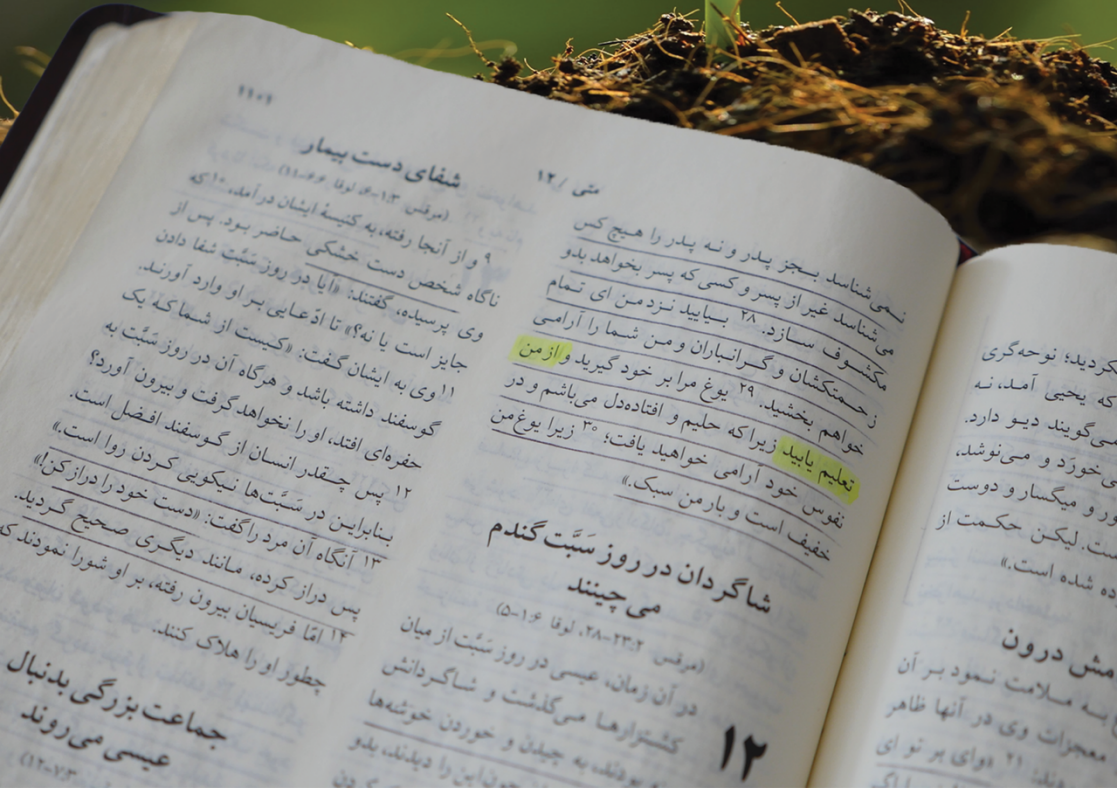 متی /۱۲
نمی‌شناسد بـجز پـدر و نـه پـدر را هـیچ کس
می‌شناسد غیر از پسر و کسی که پسر بخواهد بدو
مکشـوف سـازد. ۲۸ بـیایید نـزد مـن ای تـمام
زحـمتکشان و گـرانباران و مـن شـما را آرامـی
خواهم بخشید. ۲۹ یوغ مرا بر خود گیرید و از من
تعلیم یابید زیرا که حلیم و افتاده‌دل می‌باشم و در
نفوس خود آرامی خواهید یافت؛ ۳۰ زیرا یوغ من
خفیف است و بار من سبک.»
شاگردان در روز سَبَّت گندم
می‌چینند
(مرقس ۲:‏۲۳-۲۸، لوقا ۶:‏۱-۵)
۱۲
در آن زمان، عیسی در روز سَبَّت از میان
کشتزارها می‌گذشت و شاگردانش
بودند، به چیدن و خوردن خوشه‌ها
چون این را دیدند، بدو
شفای دست بیمار
(مرقس ۳:‏۱-۶، لوقا ۶:‏۶-۱۱)
۹ و از آنجا رفته، به کنیسهٔ ایشان درآمد، ۱۰ که
ناگاه شخص دست خشکی حـاضر بـود. پس از
وی پرسیده، گفتند: «آیا در روز سَبَّت شفا دادن
جایز است یا نه؟» تا ادّعـایی بـر او وارد آورنـد.
۱۱ وی به ایشان گفت: «کیست از شما کـه یک
گوسفند داشته باشد و هرگاه آن در روز سَبَّت به
حفره‌ای افتد، او را نخواهد گرفت و بیرون آورد؟
۱۲ پس چـقدر انسان از گـوسفند افـضل است.
بنابرایـن در سَبَّت‌ها نیکویی کـردن روا است.»
۱۳ آنگاه آن مرد را گفت: «دست خود را دراز کن!»
پس دراز کرده، مـانند دیگـری صـحیح گـردید.
۱۴ امّا فریسیان بیرون رفته، بر او شورا نمودند که
چطور او را هلاک کنند.
جماعت بزرگی بدنبال
عیسی می‌روند
نکردید؛ نوحه‌گری
که یحیی آمـد، نـه
می‌گویند دیـو دارد.
می‌خوزد و می‌نوشد،
و میگسار و دوست
است. لیکـن حکـمت از
شده است.»
به مـلامت نـمود بـر آن
معجزات وی در آنها ظاهر
۲۱ «وای بر تو ای